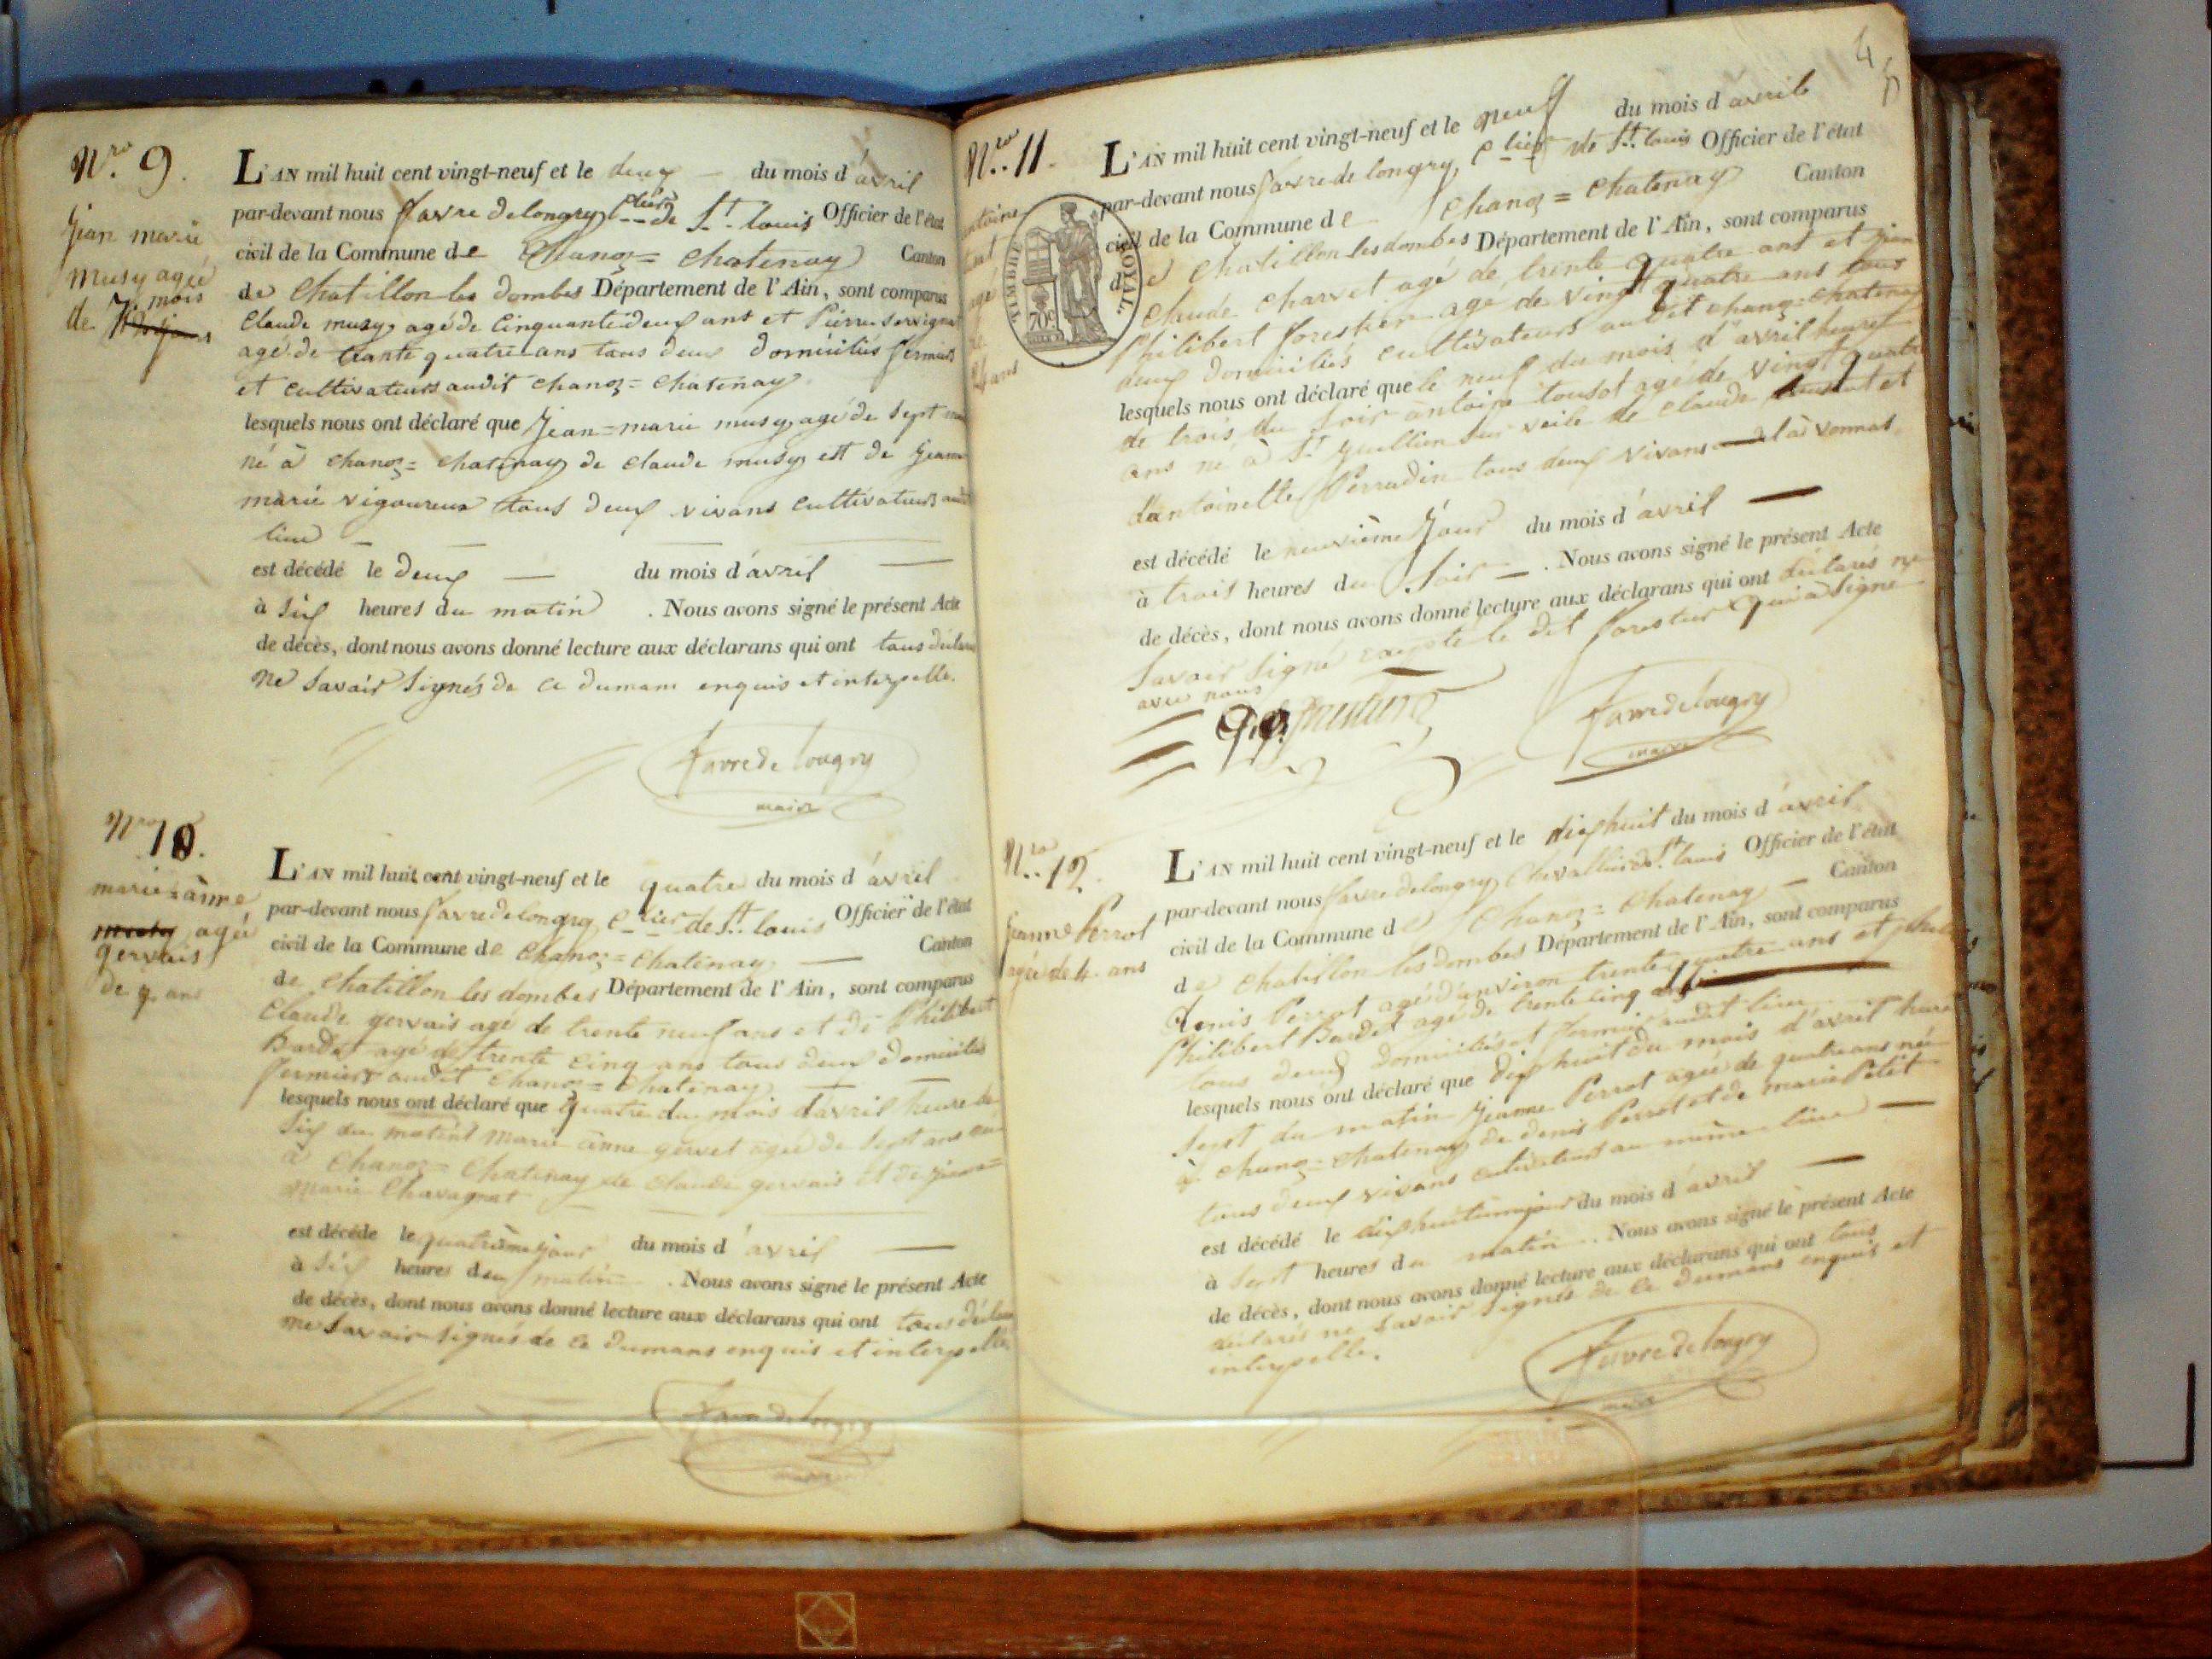 Nro 9.
Jean marie
musy agé
de 7 mois
L'AN mil huit cent vingt-neuf et le deux du mois d'avril
par-devant nous favre delongry Clier de St. louis Officier de l'état
civil de la Commune de Chanoz = Chatenay Canton
de Chatillon les dombes Département de l'Ain, sont comparus
Claude musy agé de Cinquante deux ans et Pierre
agé de trante quatre ans tous deux domiciliés fermiers
et cultivateurs audit chanoz = chatenay
lesquels nous ont déclaré que Jean = marie musy agé de sept
né à chanoz = chatenay de claude musy et de Jeanne
marie vigoureux tous deux vivans cultivateurs
lieu
est décédé le deux du mois d'avril
à six heures du matin . Nous avons signé le présent Acte
de décès, dont nous avons donné lecture aux déclarans qui ont tous
ne savoir signés de ce dumam enquis et interpellé.
favre de longry
maire
Nro 10.
marie anne
agé
gervais
de 7 ans
L'AN mil huit cent vingt-neuf et le quatre du mois d'avril
par-devant nous favre delongry Clier de St. louis Officier de l'état
civil de la Commune de Chanoz = Chatenay Canton
de Chatillon les dombes Département de l'Ain, sont comparus
Claude gervais agé de trente neuf ans et de Philibert
Bardet agé de trente cinq ans tous deux domiciliés
fermiers audit Chanoz = Chatenay
lesquels nous ont déclaré que quatre du mois d'avril heure de
six du matin marie anne gervet agée de sept ans
à Chanoz = Chatenay de Claude gervais et de
marie Chavagnat
est décédé le quatrième jour du mois d'avril
à six heures du matin . Nous avons signé le présent Acte
de décès, dont nous avons donné lecture aux déclarans qui ont tous
ne savoir signés de ce dumans enquis et interpellé.
favre de longry
maire
4
Nro 11.
antoine
agé
ans
TIMBRE ROYAL.
70c
L'AN mil huit cent vingt-neuf et le neuf du mois d'avril
par-devant nous favre de longry Clier de St. louis Officier de l'état
civil de la Commune de Chanoz = Chatenay Canton
de Chatillon les dombes Département de l'Ain, sont comparus
Claude Charvet agé de trente quatre ans et
Philibert forestier agé de vingt quatre ans tous
deux domiciliés cultivateurs audit chanoz = chatenay
lesquels nous ont déclaré que le neuf du mois d'avril heures
de trois du soir antoine agé de vingt quatre
ans né à St. sur veile de Claude et
d'antoinette Perradin tous deux vivans à vonnas
est décédé le neuvième jour du mois d'avril
à trois heures du soir . Nous avons signé le présent Acte
de décès, dont nous avons donné lecture aux déclarans qui ont déclarés ne
savoir signé le dit forestier qui a signé
avec nous
favre de longry
maire
Nro 12.
Jeanne Perrot
agée de 4 ans
L'AN mil huit cent vingt-neuf et le dix huit du mois d'avril
par-devant nous favre delongry Chevallier de St. louis Officier de l'état
civil de la Commune de Chanoz = Chatenay Canton
de Chatillon les dombes Département de l'Ain, sont comparus
denis Perrot agé d'environ trente quatre ans et
Philibert Bardet agé de trente cinq ans
tous deux domiciliés et fermiers audit lieu
lesquels nous ont déclaré que dix huit du mois d'avril heure
sept du matin Jeanne Perrot agée de quatre ans née
à chanoz = chatenay de denis Perrot et de marie Petit
tous deux vivans cultivateurs au même lieu
est décédé le dix huitième jour du mois d'avril
à sept heures du matin . Nous avons signé le présent Acte
de décès, dont nous avons donné lecture aux déclarans qui ont tous
déclarés ne savoir signés de ce dumans enquis et
interpellé.
favre de longry
maire